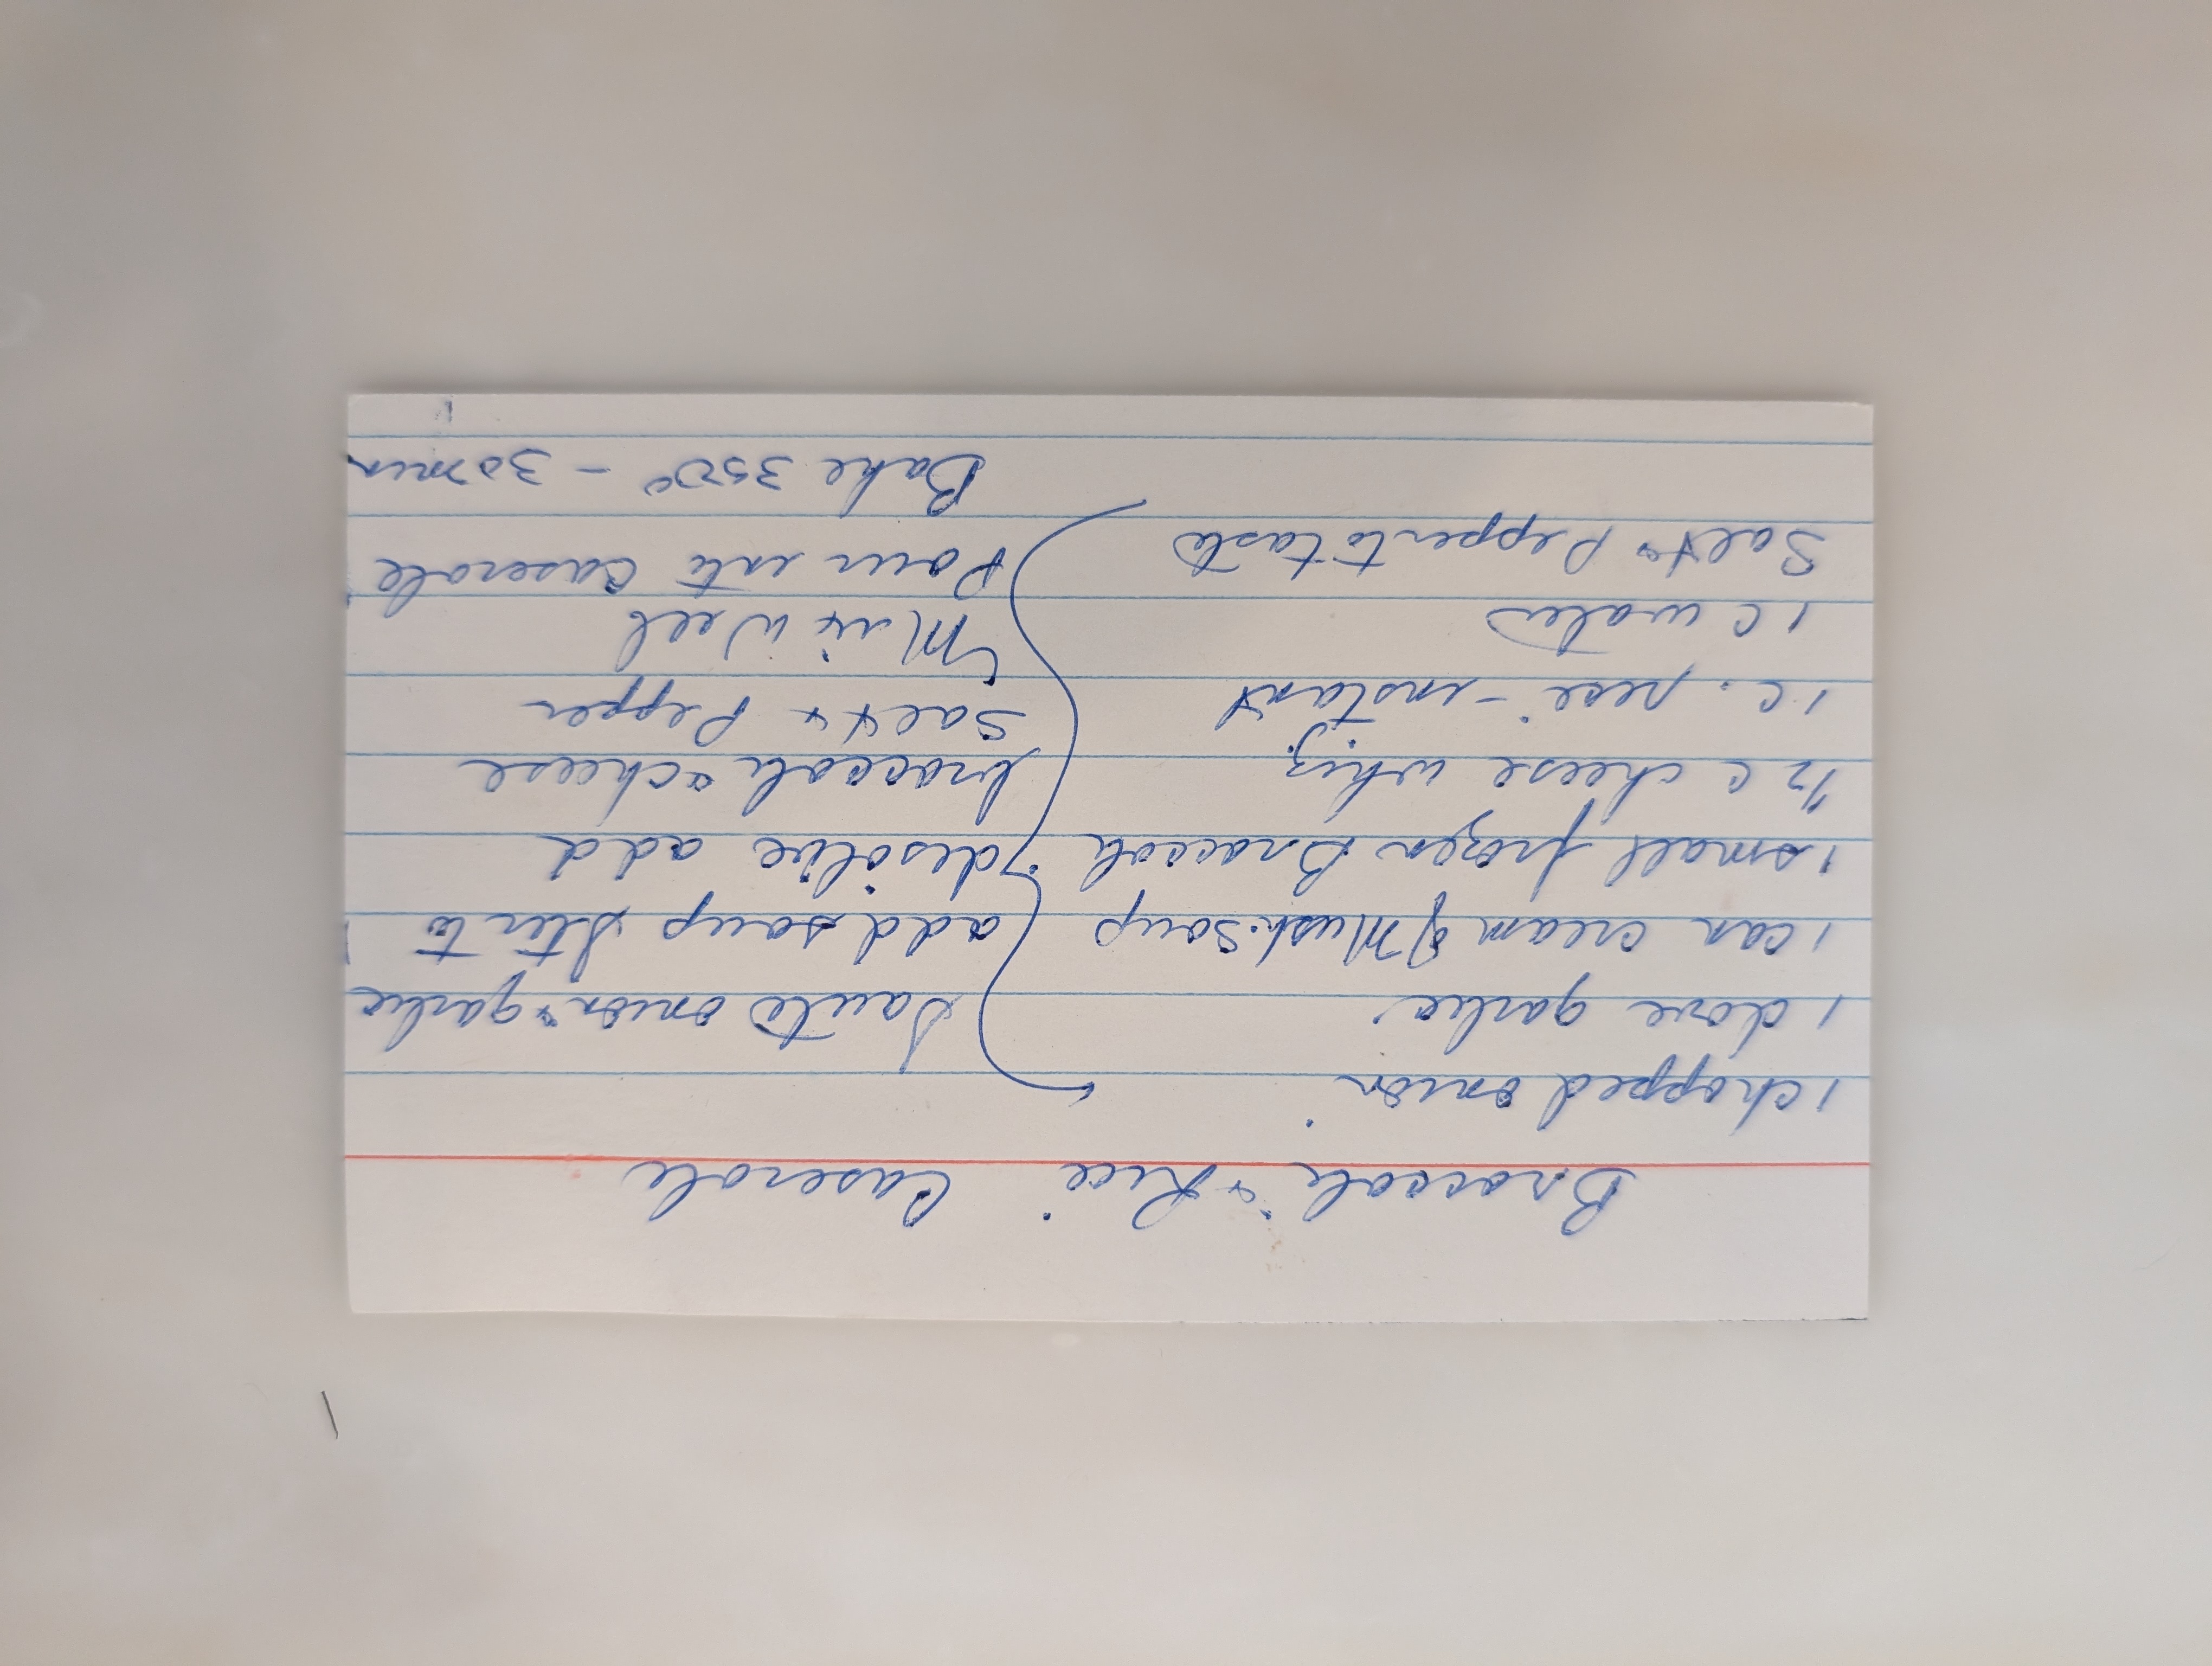 Broccoli & Rice Caserole
1 chopped onion
1 clove garlic
1 can cream of Mush. Soup
1 small frozen Broccoli
1/2 c cheese whiz
1 c. rice - instant
1 c water
Salt & Pepper to taste
Saute onion & garlic
add soup stir to
desolve add
broccoli & cheese
Salt & Pepper
Mix Well
Pour into Caserole
Bake 350° - 30 min